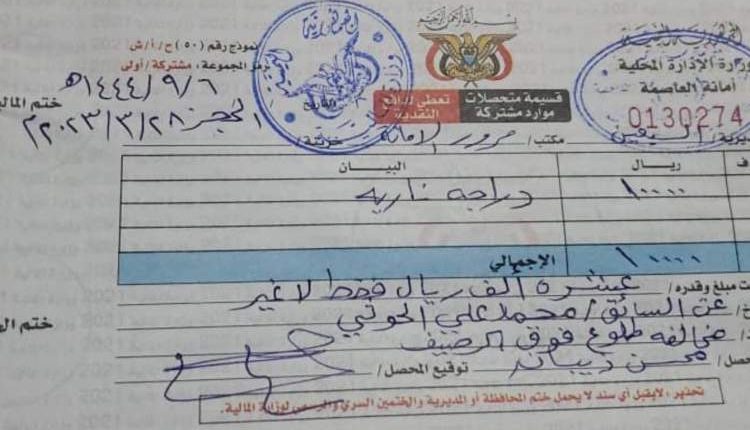 بسم الله الرحمن الرحيم
الجمهورية اليمنية
وزارة الإدارة المحلية
أمانة العاصمة
0130274
قسيمة متحصلات
موارد مشتركة
تعطى لدافع
النقدية
نموذج رقم (٥٠) ح/أ/ش
رمز المجموعة، مشتركة/أولى
١٤٤٤/٩/٦هـ
٢٠٢٣/٣/٢٨م
ختم المالية
مكتب/ مرور الأمانة
ريال البيان
١٠٠٠٠ دراجه ناريه
١٠٠٠٠ الإجمالي
مبلغ وقدره/ عشرة الف ريال فقط لا غير
عن السائق/ محمد علي الحوثي
مخالفه طلوع فوق الرصيف
محسن توقيع المحصل/
تحذير، لايقبل أي سند لا يحمل ختم المحافظة أو المديرية والختمين السري والرسمي لوزارة المالية.